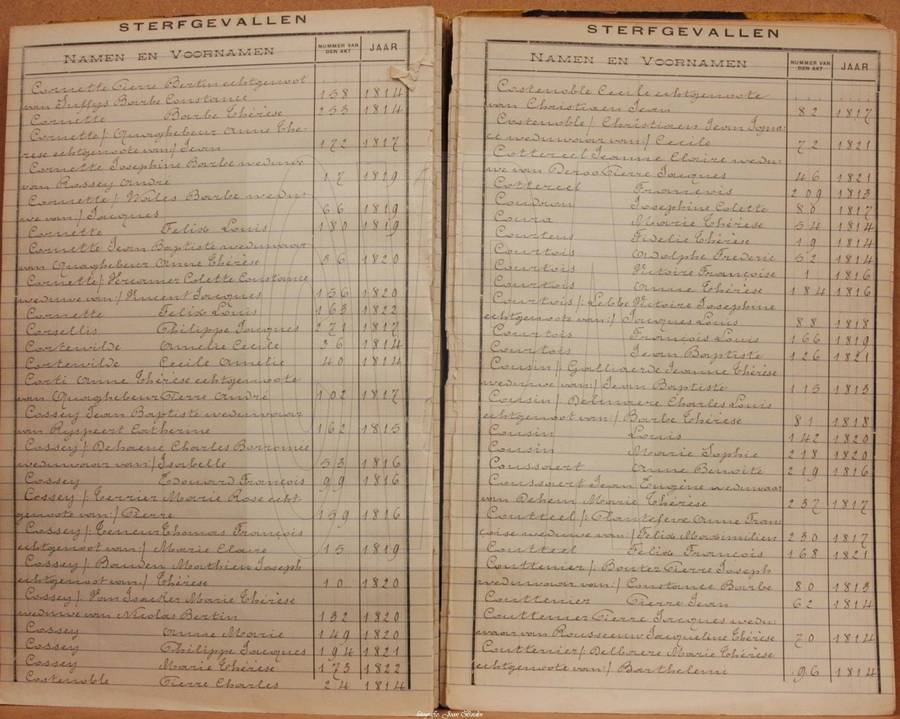 STERFGEVALLEN
NAMEN EN VOORNAMEN NUMMER VAN DEN AKT JAAR
Cornette Pierre Bertin echtgenoot
van Barbe Constance 158 1814
Cornette Barbe Thérèse 253 1814
Cornette / Quaghebeur Anne Thé-
rèse echtgenoote van / Jean 172 1817
Cornette Josephine Barbe weduwe
van Rossey André 17 1819
Cornette / Noiles Barbe wedu-
we van / Jacques 66 1819
Cornette Felix Louis 180 1819
Cornette Jean Baptiste weduwaar
van Quaghebeur Anne Thérèse 36 1820
Cornette / Colette Constance
weduwe van / Vincent Jacques 156 1820
Cornette Felix Louis 163 1822
Corsellis Philippe Jacques 271 1817
Cortewilde Amelie Cecile 36 1814
Cortewilde Cecile Amelie 40 1814
Corti Anne Thérèse echtgenoote
van Quaghebeur Pierre André 102 1817
Cossey Jean Baptiste weduwaar
van Ryspeert Catherine 162 1815
Cossey / Dehaene Charles Borromée
weduwaar van / Isabelle 53 1816
Cossey Edouard François 99 1816
Cossey / Terrier Marie Rose echt-
genoote van / Pierre 159 1816
Cossey / Teneur Thomas François
echtgenoot van / Marie Claire 15 1819
Cossey / Bauden Mathieu Joseph
echtgenoot van / Thérèse 10 1820
Cossey / Van Isacker Marie Thérèse
weduwe van Nicolas Bertin 132 1820
Cossey Anne Marie 149 1820
Cossey Philippe Jacques 194 1821
Cossey Marie Thérèse 173 1822
Costenoble Pierre Charles 24 1814
STERFGEVALLEN
NAMEN EN VOORNAMEN NUMMER VAN DEN AKT JAAR
Costenoble Cecile echtgenoote
van Christiaen Jean 82 1817
Costenoble / Christiaen Jean Igna-
ce weduwaar van / Cecile 72 1821
Cottereel Jeanne Claire wedu-
we van Deroo Pierre Jacques 46 1821
Cottereel François 209 1813
Coudron Josephine Colette 80 1817
Coura Marie Thérèse 54 1814
Courtens Fidelie Thérèse 19 1814
Courtois Adolphe Frederic 52 1814
Courtois Victoire Françoise 1816
Courtois Anne Thérèse 184 1816
Courtois / Lebbe Victoire Josephine
echtgenoote van / Jacques Louis 88 1818
Courtois François Louis 166 1819
Courtois Jean Baptiste 126 1821
Cousin / Gallivarde Jeanne Thérèse
weduwe van / Jean Baptiste 113 1813
Cousin / Delmaere Charles Louis
echtgenoot van / Barbe Thérèse 81 1818
Cousin Louis 142 1820
Cousin Marie Sophie 218 1820
Coussaert Anne Benoite 219 1816
Coussaert Jean Eugène weduwaar
van Dehem Marie Thérèse 237 1817
Coutteel / Plantefeve Anne Fran-
çoise weduwe van / Felix Maximilien 230 1817
Coutteel Felix François 168 1821
Couttenier / Bouter Pierre Joseph
weduwaar van / Constance Barbe 80 1813
Couttenier Pierre Jean 62 1814
Couttenier Pierre Jacques wedu-
waar van Rousseeuw Jacqueline Thérèse 70 1814
Couttenier / Delboere Marie Thérèse
echtgenoote van / Barthelemi 96 1814